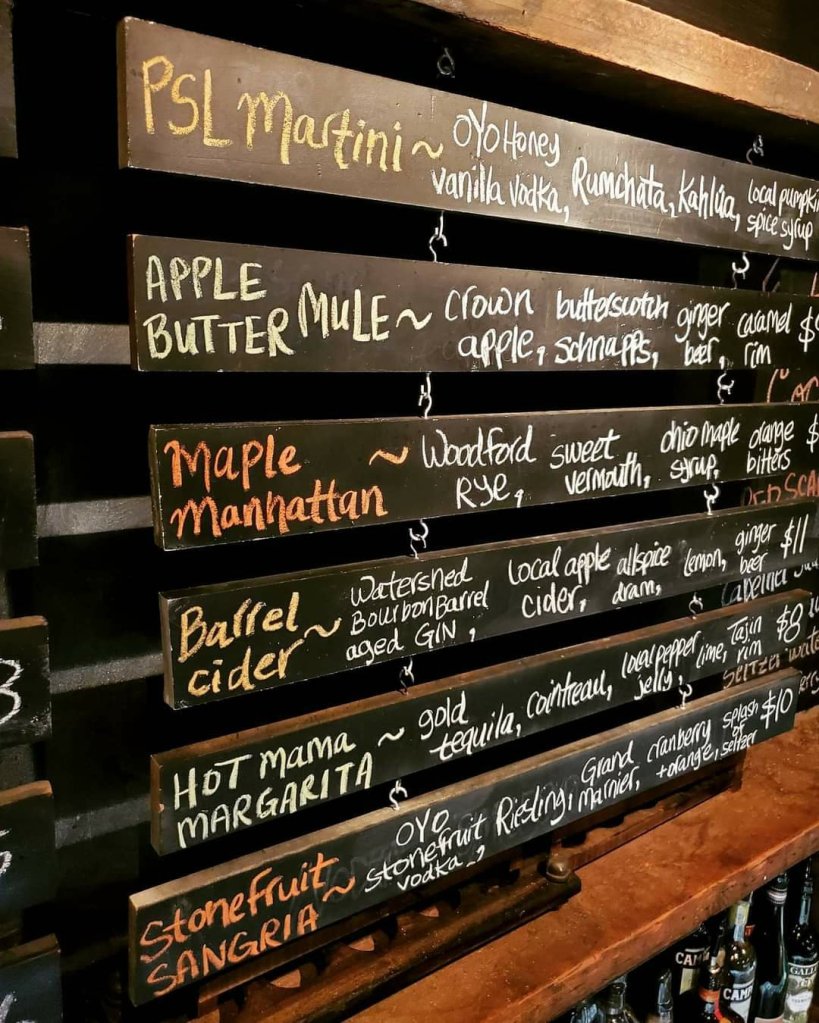 PSL Martini ~ OYO Honey vanilla vodka, Rumchata, Kahlúa, local pumpkin spice syrup
APPLE BUTTER MULE ~ crown apple, butterscotch schnapps, ginger beer, caramel rim $
Maple Manhattan ~ Woodford Rye, sweet vermouth, ohio maple syrup, orange bitters $
Barrel cider ~ Watershed Bourbon Barrel aged GIN, local apple cider, allspice dram, lemon, ginger beer $11
HOT mama MARGARITA ~ gold tequila, Cointreau, local pepper jelly, lime, Tajin rim $8
Stonefruit SANGRIA ~ OYO stonefruit vodka, Riesling, Grand marnier, cranberry + orange, splash of seltzer $10